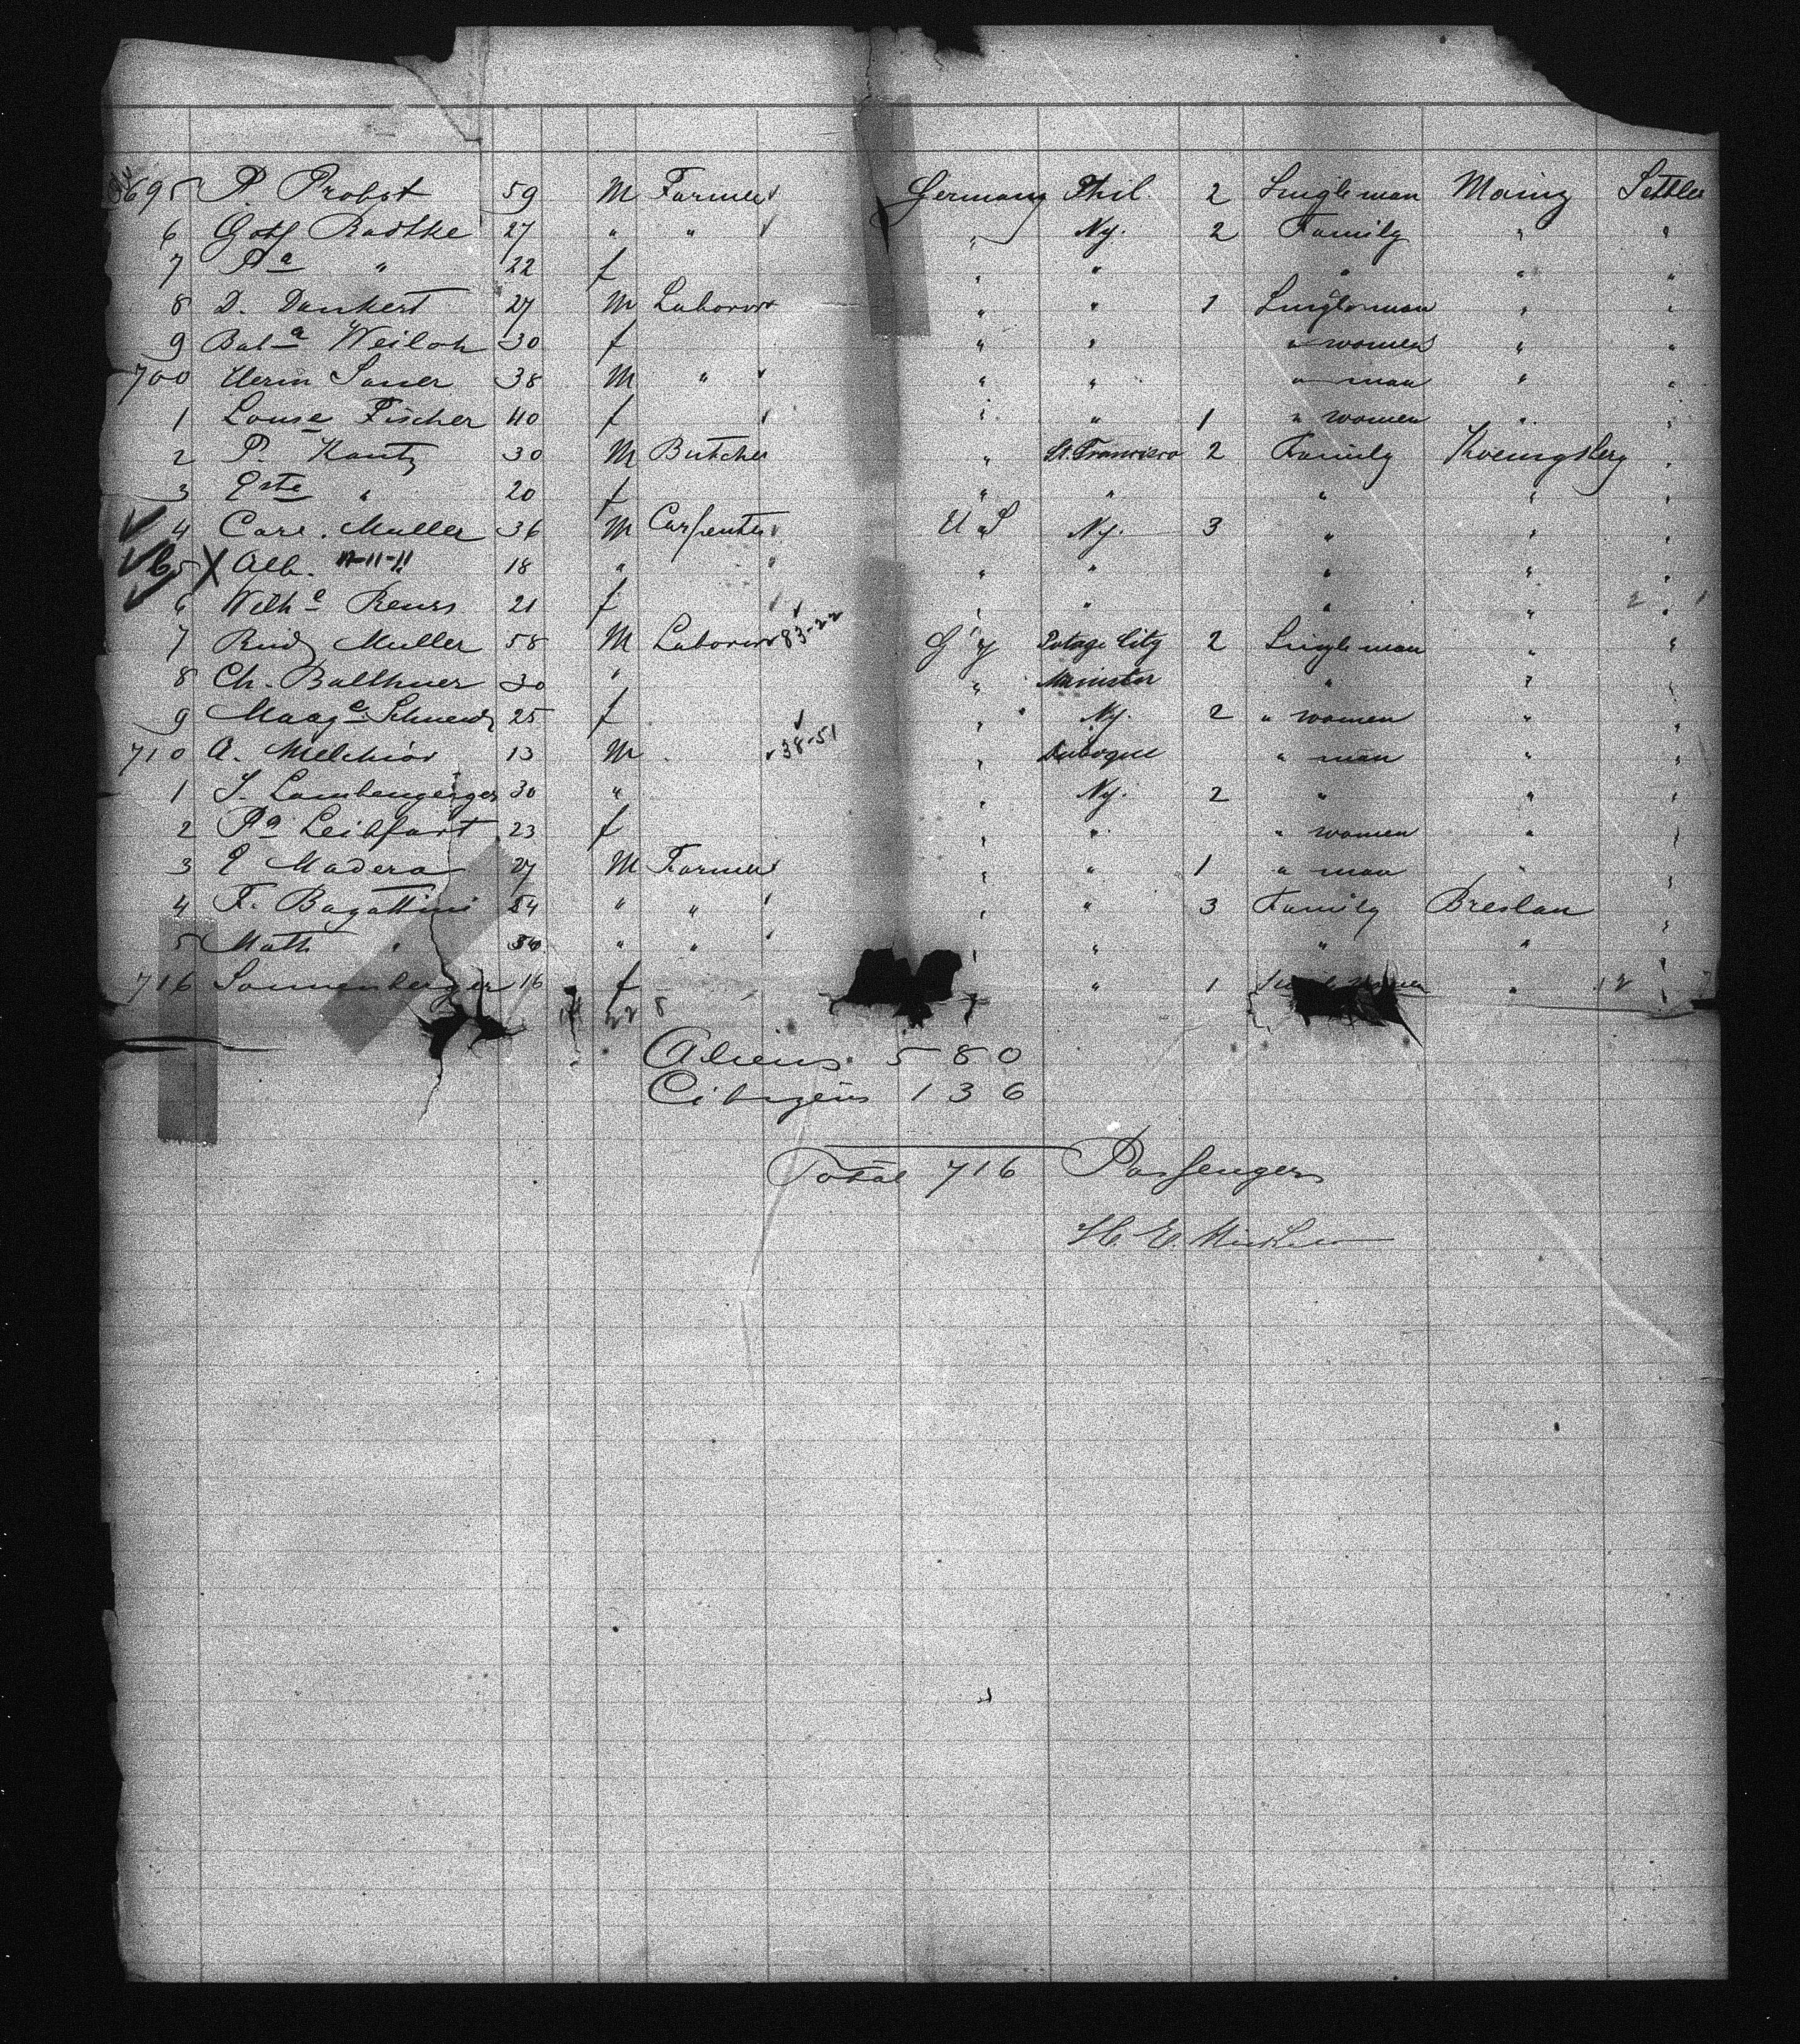 695 P. Probst 59 M Farmer Germany Phil. 2 Single man Mainz Settler
6 Gotf Radtke 27 " " " Ny. 2 Family " "
7 Pa " 22 f " " " " "
8 D. Dankert 27 M Laborer " " 1 Single man " "
9 Bab a Weiloh 30 f " " " women " "
700 Herm Sauer 38 M " " " " man " "
1 Louse Fischer 40 f " " 1 " women " "
2 P. Kautz 30 M Butcher " St. Francisco 2 Family Koenigsberg "
3 Este " 20 f " " " " "
4 Carl. Muller 36 M Carpenter U S Ny. 3 " " "
5 X Alb. 11-11-11 18 " " " " " " "
6 Wilh e Reuss 21 f " " " " "
7 Rud Muller 58 M Laborer 83-22 G y Potage City 2 Single man " "
8 Ch. Balthner 30 " " " " "
9 Magg e Schneidz 25 f " Ny. 2 " women " "
710 A. Melchior 13 M 38-51 " Duboque " man " "
1 J. Lambengerger 30 " " Ny. 2 " " "
2 Pa Leibfart 23 f " " " women " "
3 E Madera 27 M Farmer " " 1 " man " "
4 F. Bagattini 54 " " " " 3 Family Breslau "
5 Math " " " " " " "
716 Sonnenberger 16 f " 1 " 12
Aliens 580
Citizens 136
Total 716 Passengers
H. E.